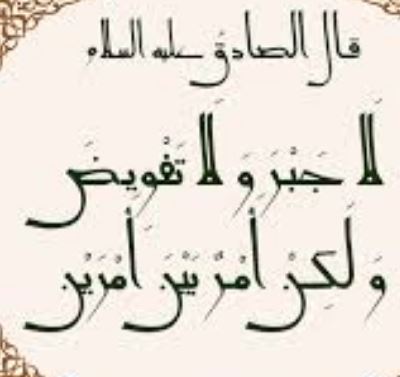 قال الصادق علیه السلام
لَا جَبْرَ وَ لَا تَفْوِیضَ
وَ لَکِنْ أَمْرٌ بَیْنَ أَمْرَیْنِ